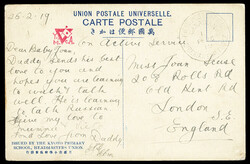 UNION POSTALE UNIVERSELLE.
CARTE POSTALE
きかは便郵國萬
25-2-19
On Active Service
Dear Baby Joan,
Daddy sends his best
love to you and
hopes you are learning
to walk & talk
well. He is learning
to talk Russian
from a cow to
And Love from Daddy
Miss Joan
209 Rolls Rd
Old Kent Rd
London
S.E.
England
ISSUED BY THE KYOTO
SCHOOL, HEADQUARTERS UNION